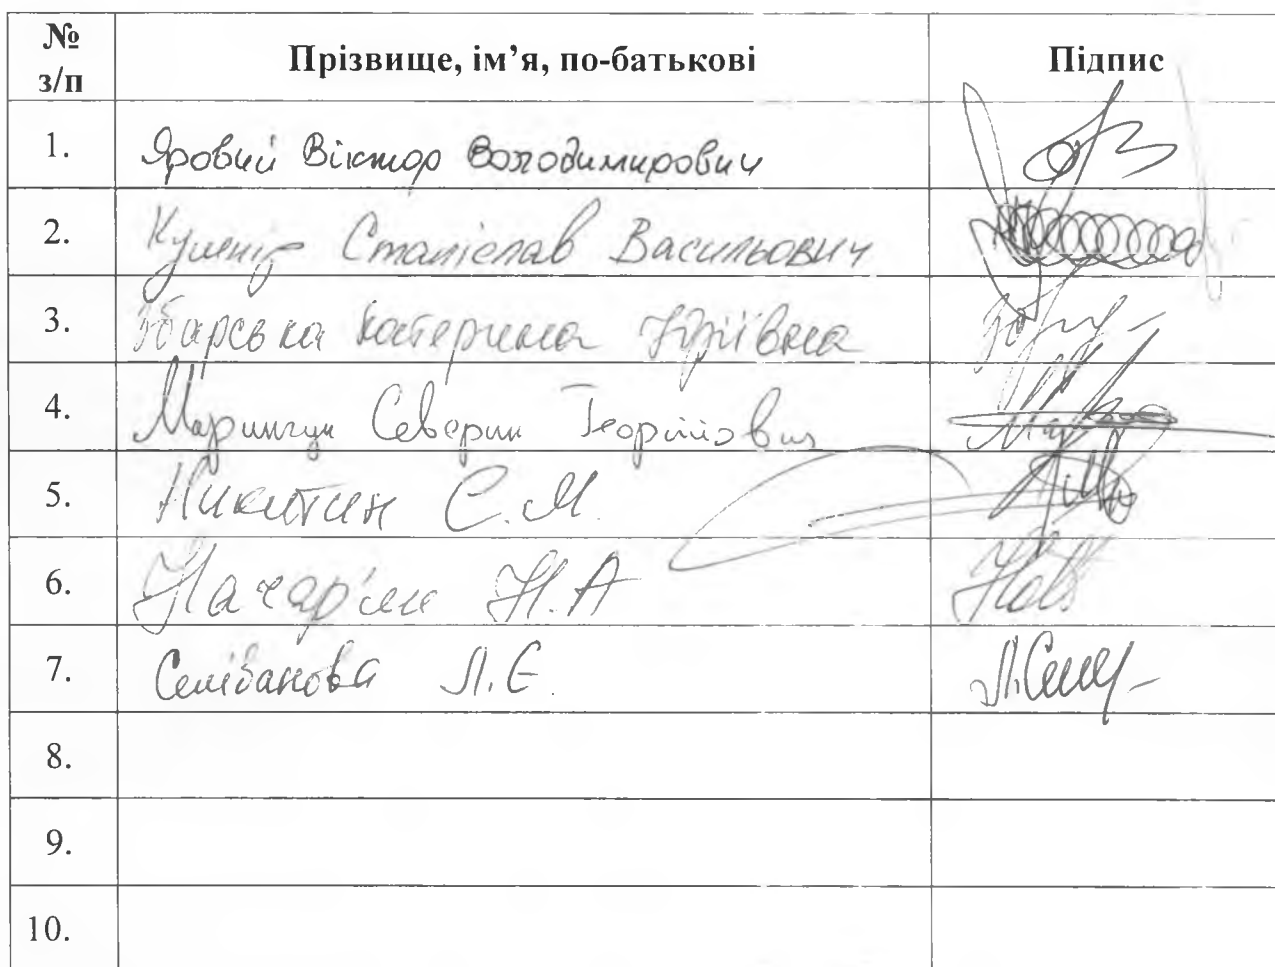 № з/п Прізвище, ім’я, по-батькові Підпис
1. Яровий Віктор Володимирович
2. Кушнір Станіслав Васильович
3. Збарська Катерина Юріївна
4. Северин Георгійович
5. Никитин С.М.
6. Н.А
7. Селіванова Л.Є.
8.
9.
10.